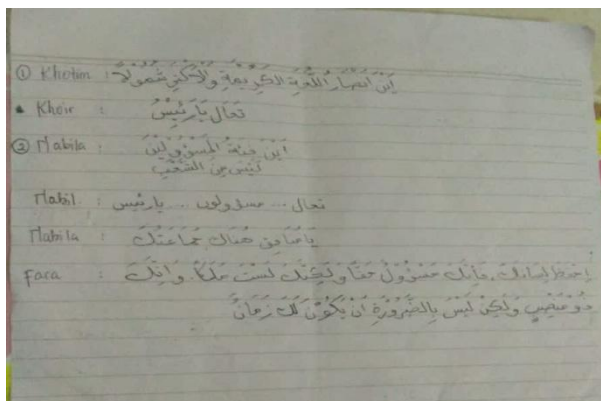 ① Khotim : اَيْنَ اَنْصَارُ اللُّغَةِ الْكَرِيْمَةِ وَالْاَكْثَرِ شُمُوْلًا
• Khoir : تَعَالَ يَا رَئِيْسُ
② Nabila : اَيْنَ فِئَةُ الْمَسْؤُوْلِيْنَ
لَيْسَ مِنَ الشَّعْبِ
Nabil : تعال ... مسؤولون ... يارئيس
Nabila : هُنَاكَ جَمَاعَتُكَ
Fara : اِحْفَظْ لِسَانَكَ. فَاِنَّكَ مَسْؤُوْلٌ حَقًّا وَلٰكِنَّكَ لَسْتَ مَلَكًا. وَاِنَّكَ
ذُوْ مَنْصِبٍ وَلٰكِنْ لَيْسَ بِالضَّرُوْرَةِ اَنْ يَكُوْنَ لَكَ زَمَانٌ